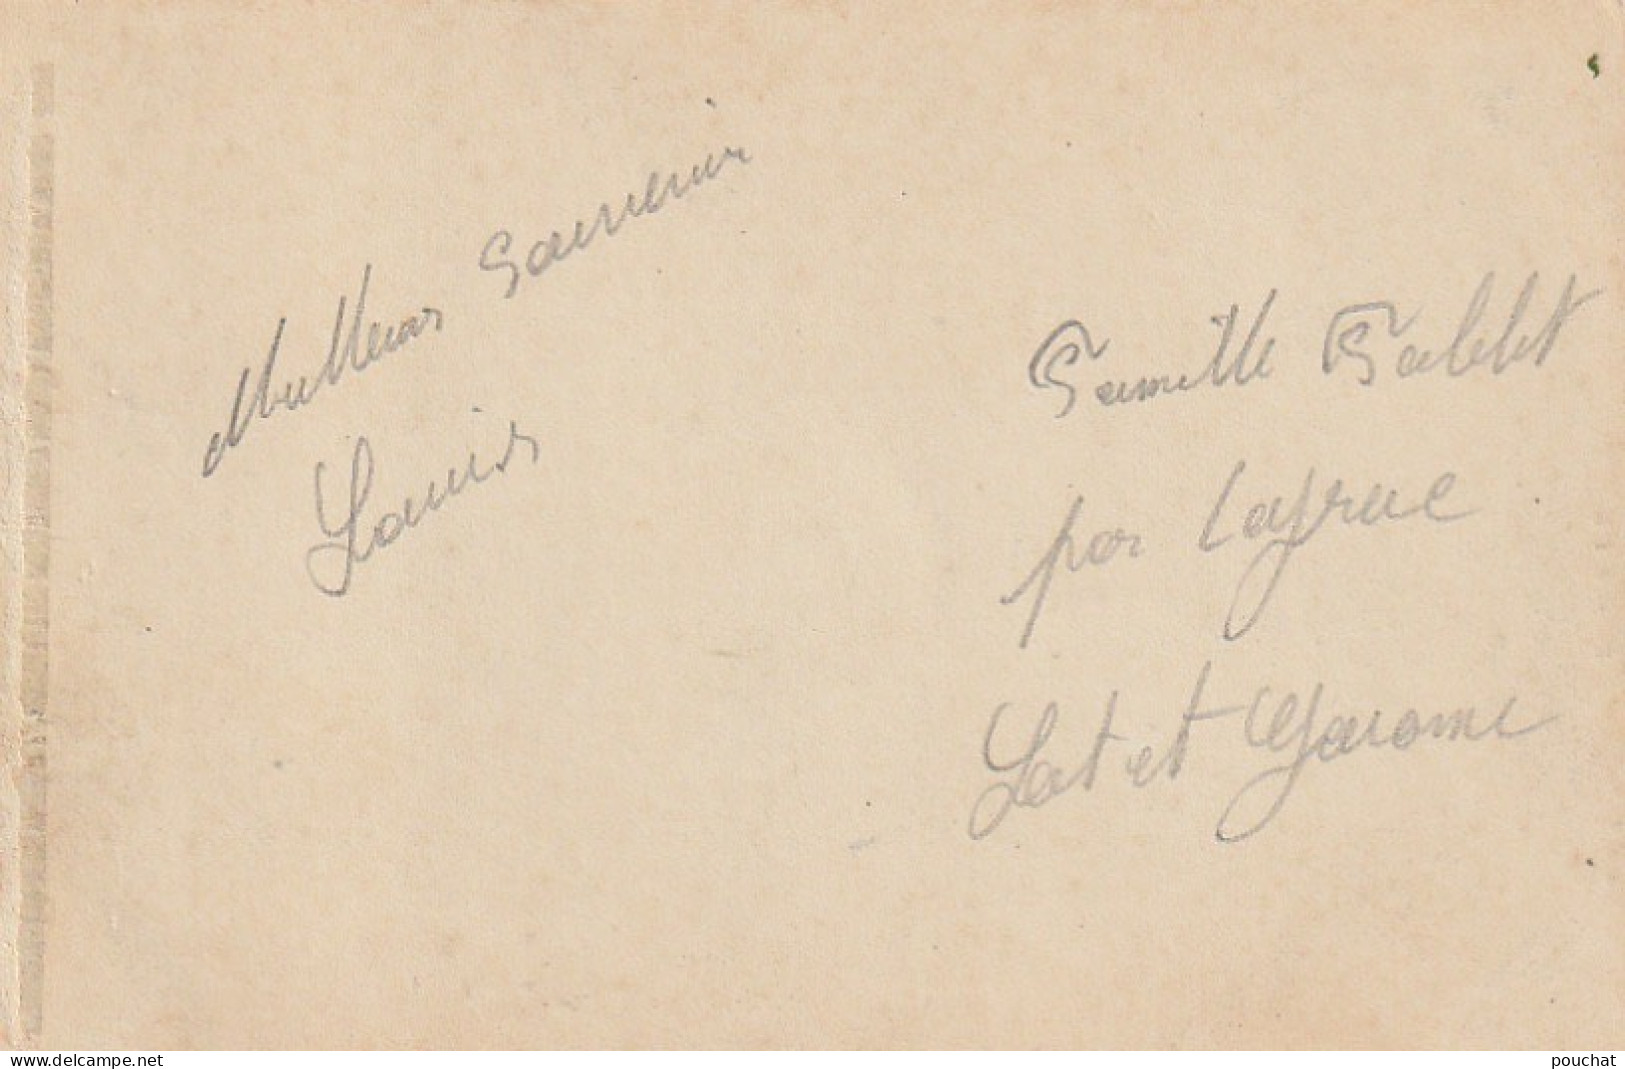 Meilleurs Souvenir
Louis
Famille
par Layrac
Lot et Garonne
www.delcampe.net
pouchat